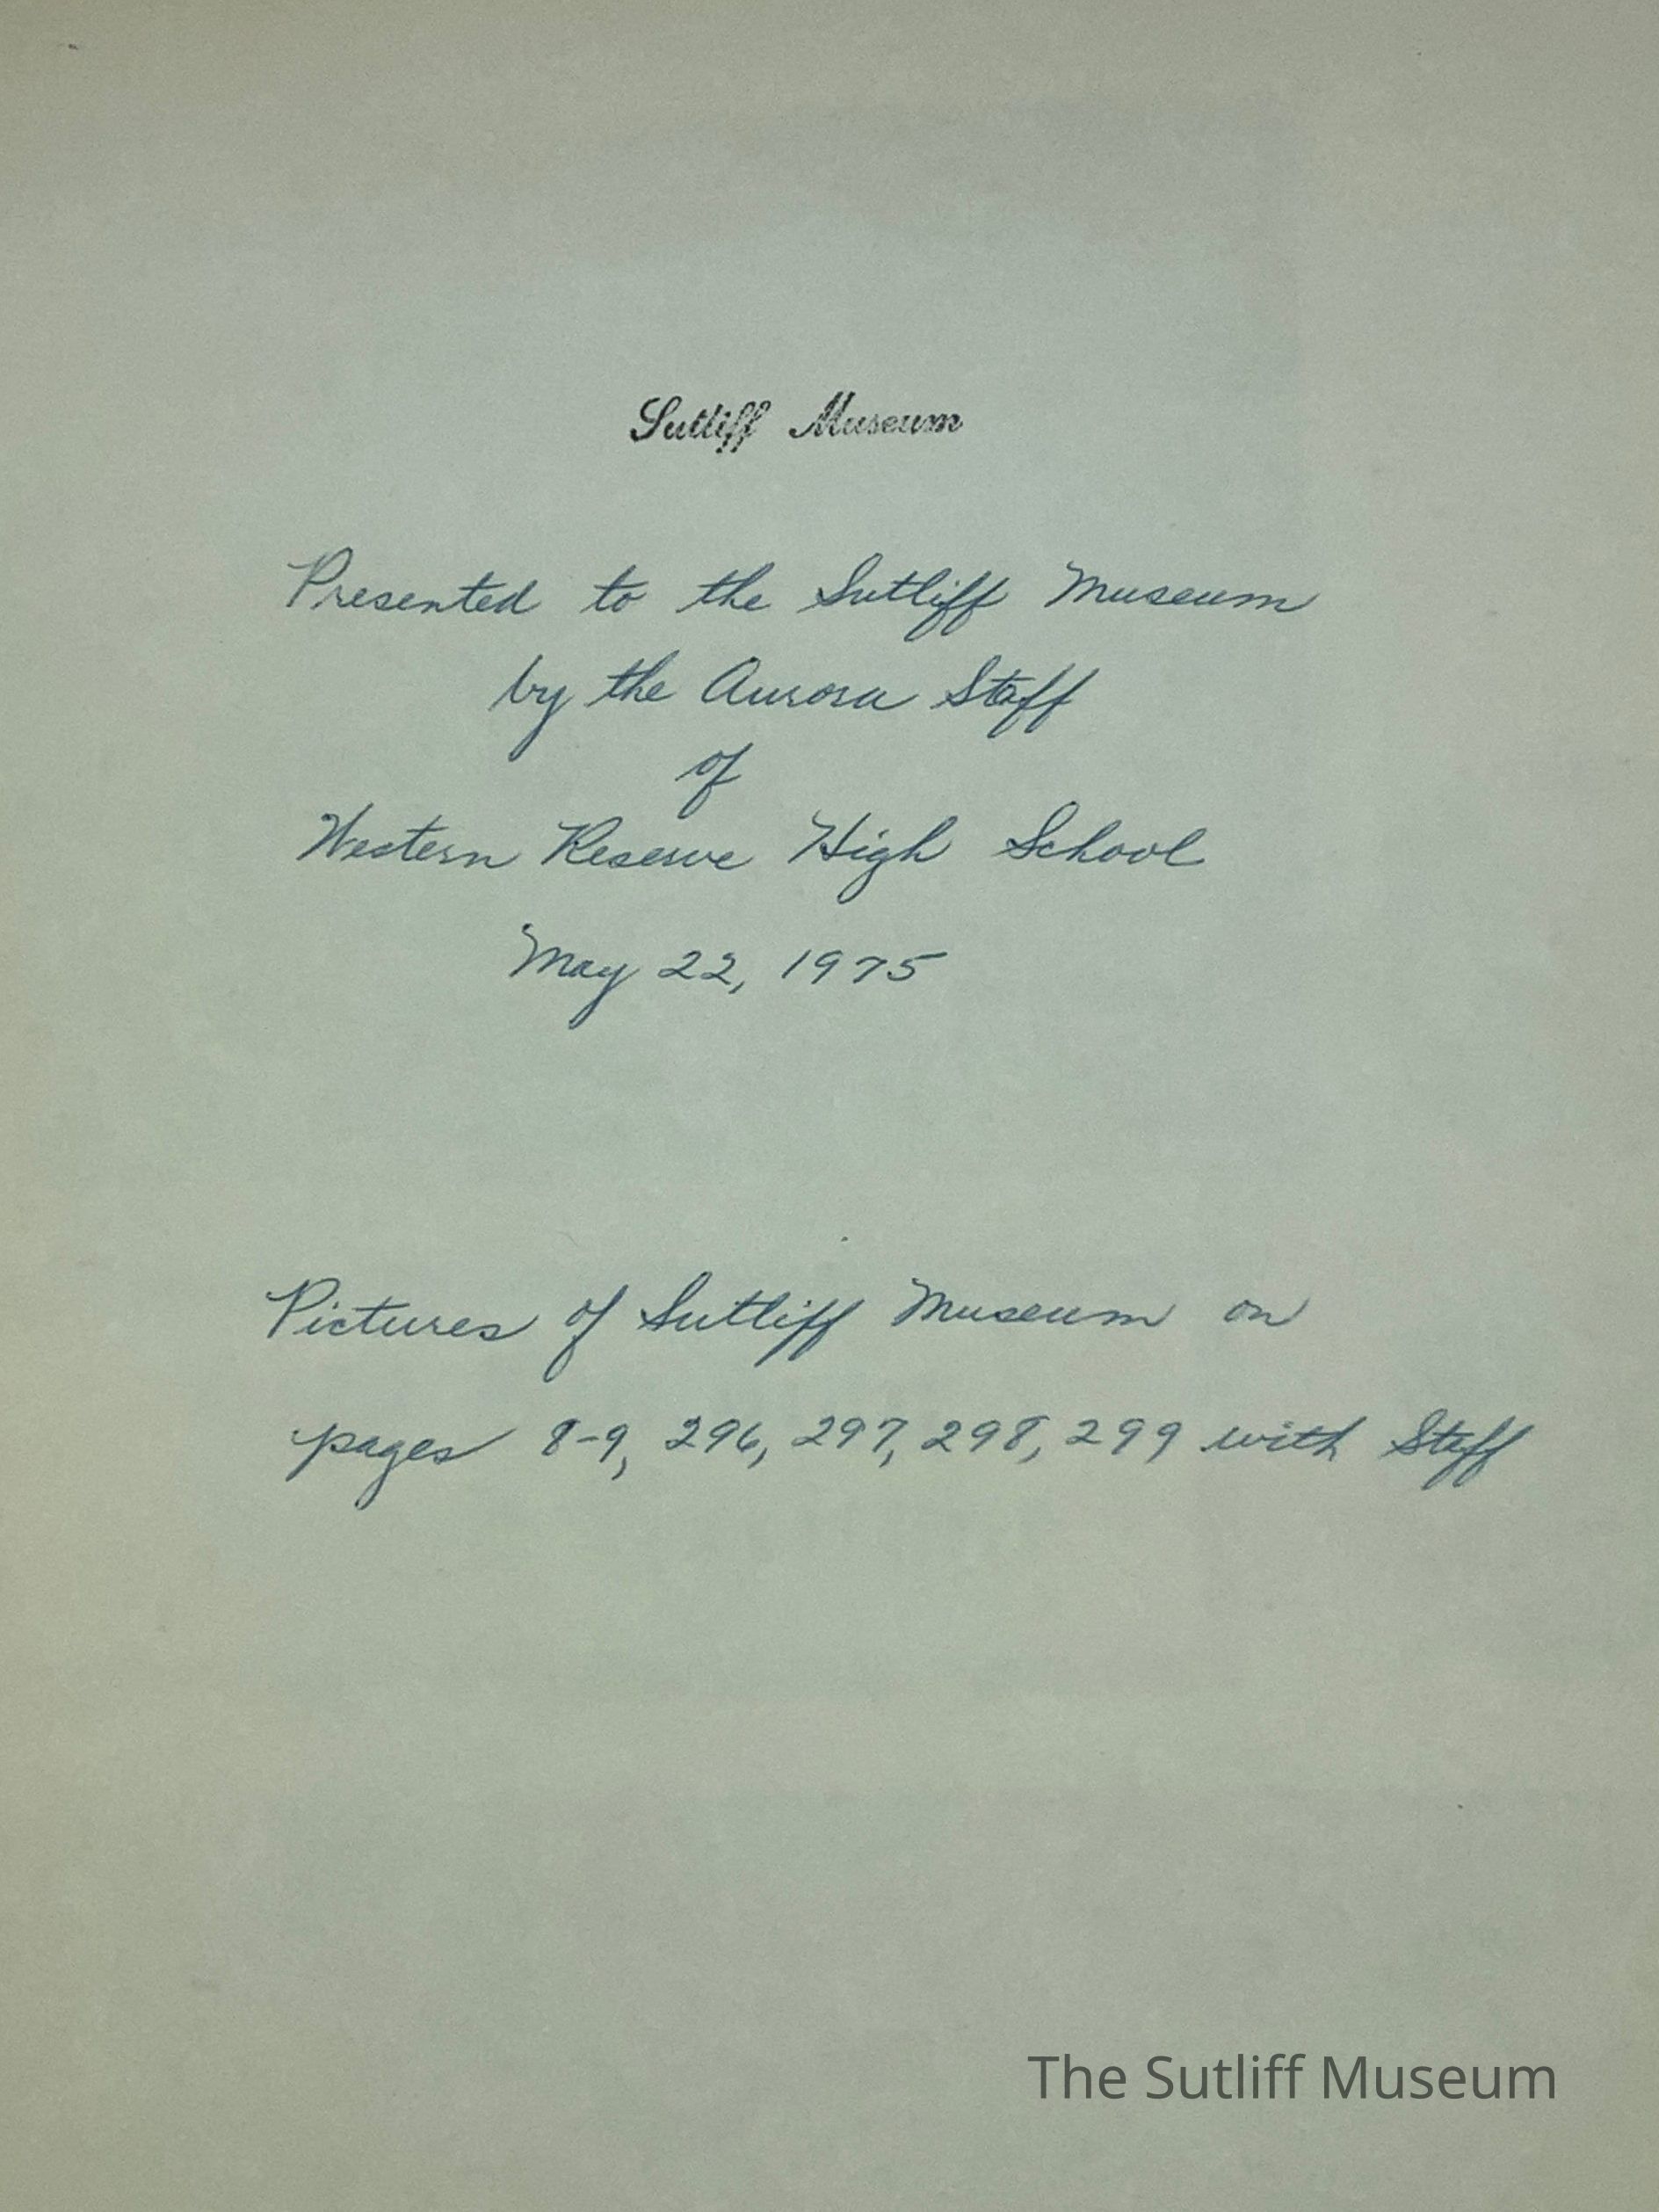 Sutliff Museum
Presented to the Sutliff Museum
by the Aurora Staff
of
Western Reserve High School
May 22, 1975
Pictures of Sutliff Museum on
pages 8-9, 296, 297, 298, 299 with Staff
The Sutliff Museum